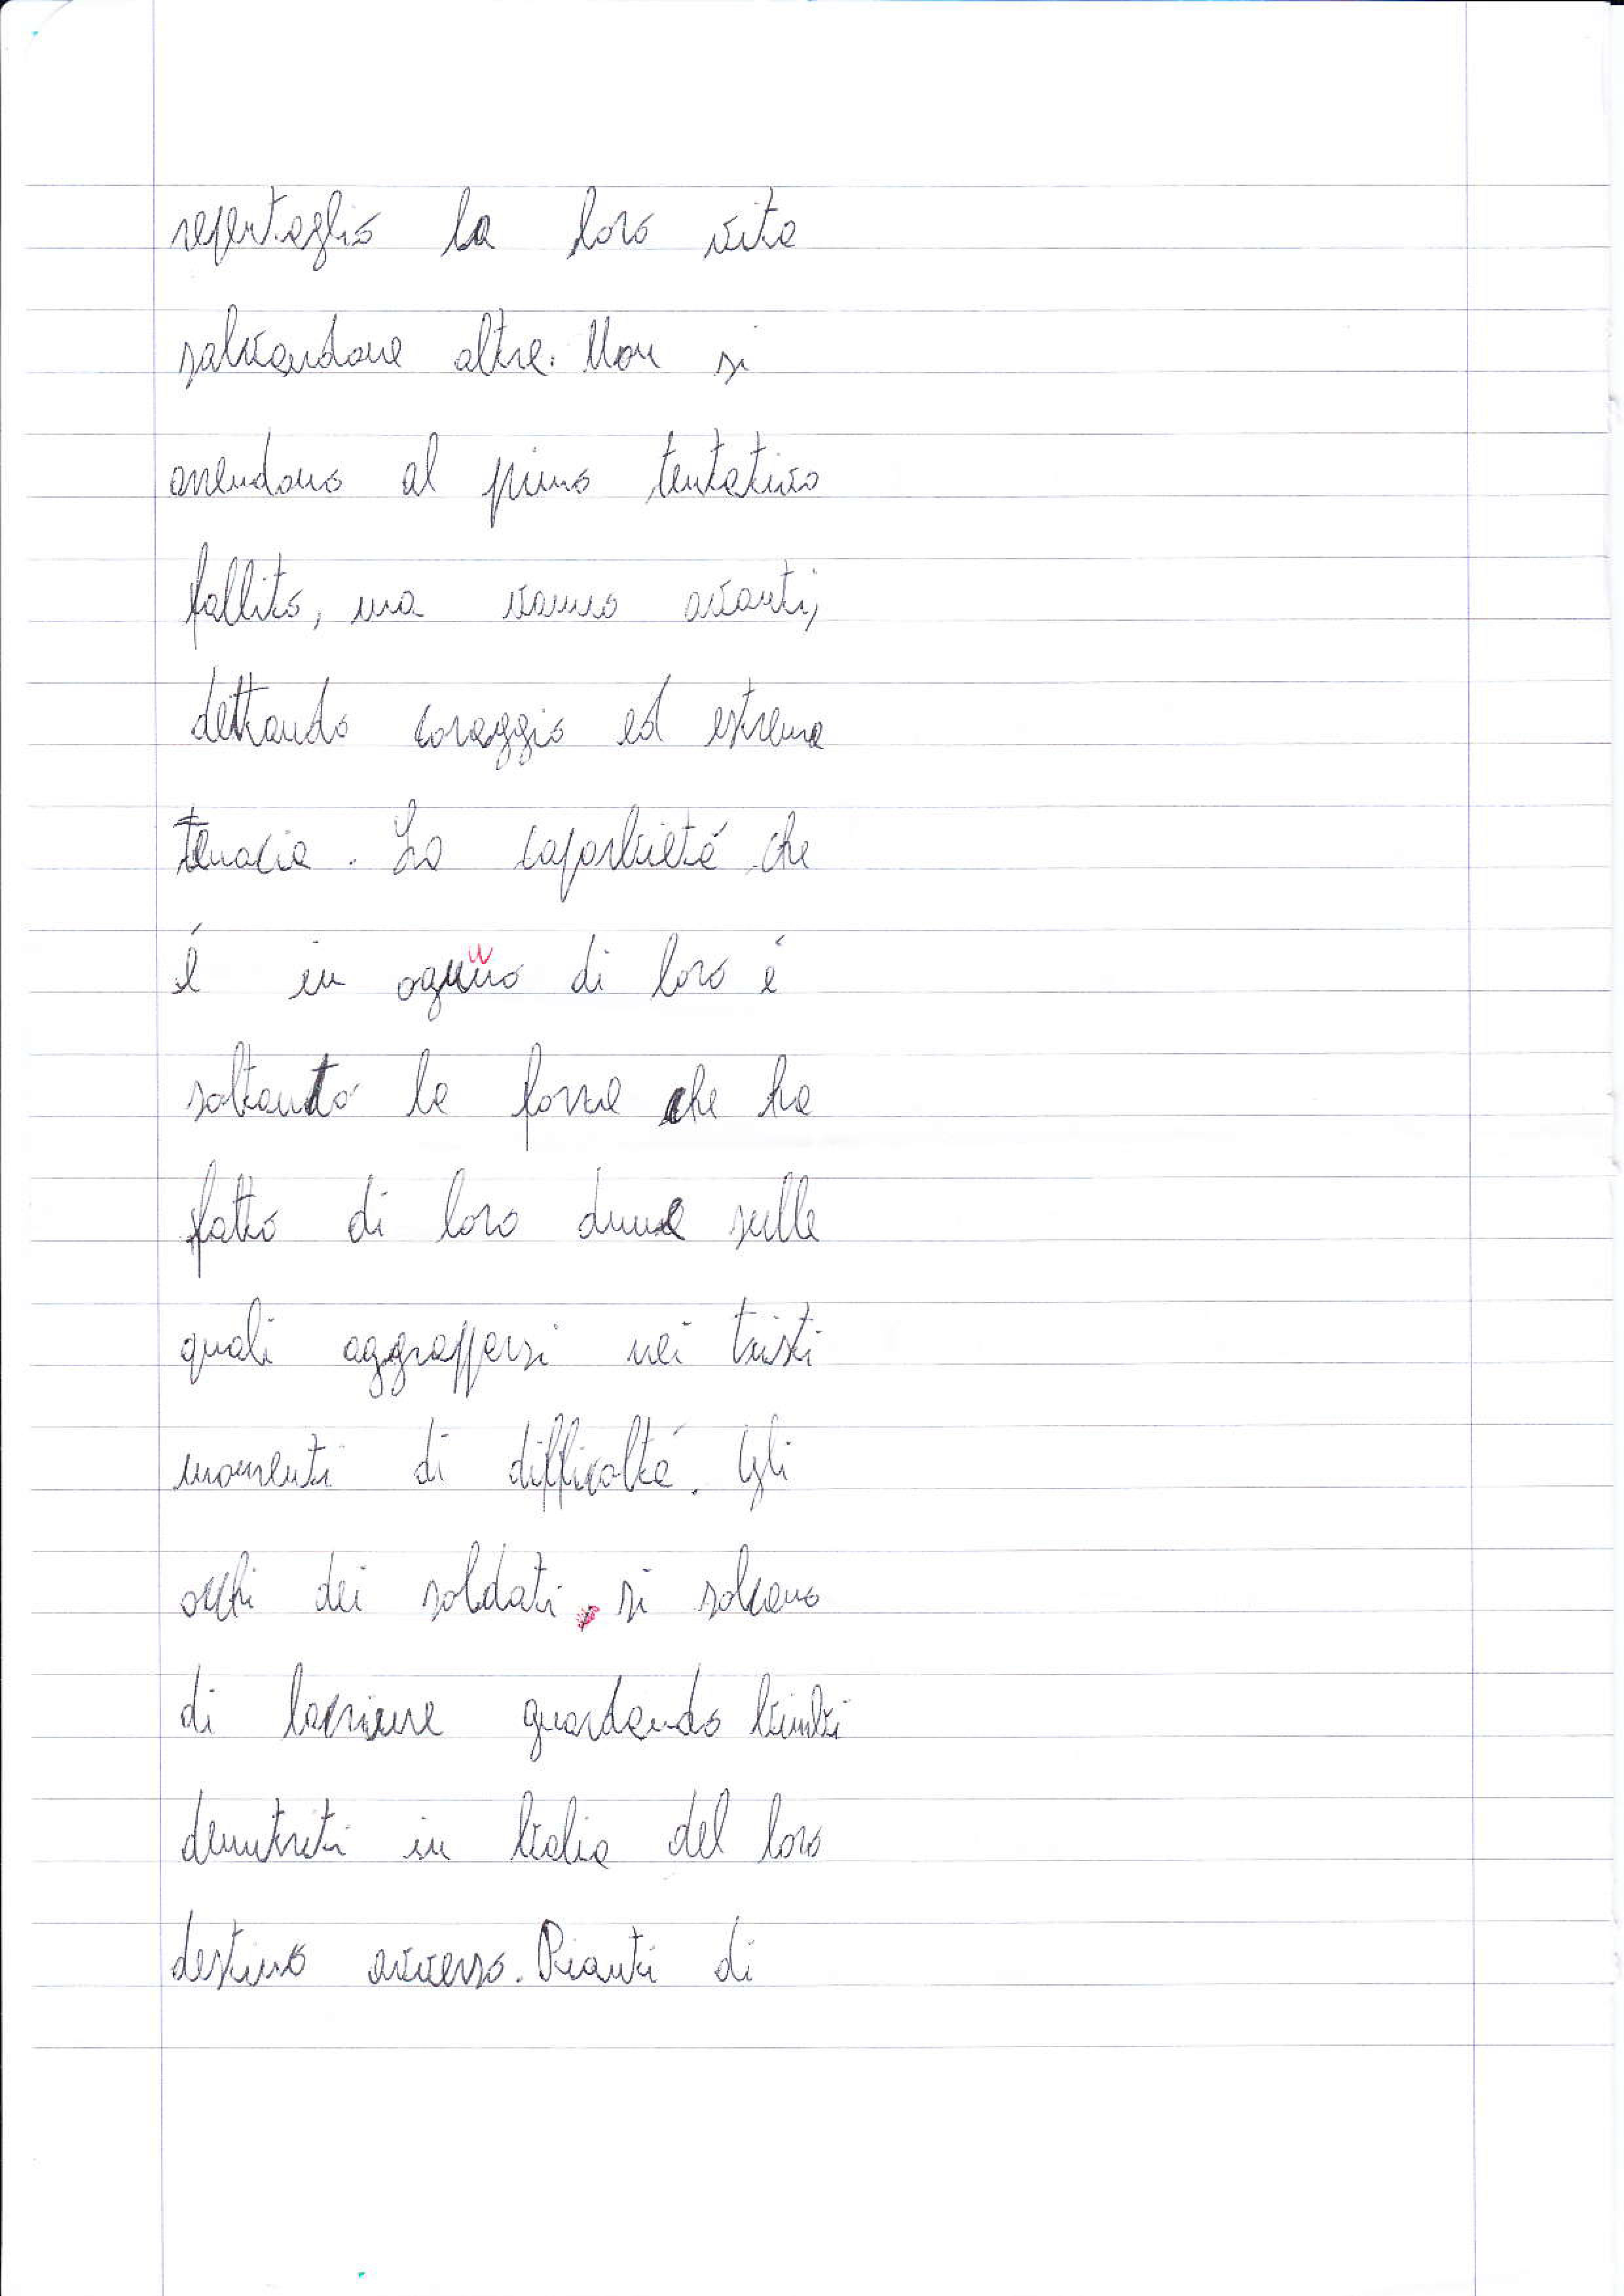 repentaglio la loro vita
salvandone altre. Non si
arrendono al primo tentativo
fallito, ma vanno avanti,
dettando coraggio ed estrema
tenacia. La caparbietá che
é in ognuno di loro é
soltanto la forza che ha
fatto di loro dune sulle
quali aggrapparsi nei tristi
momenti di difficoltá. Gli
occhi dei soldati si solcano
di lacrime guardando bimbi
denutriti in balia del loro
destino avverso. Pianti di